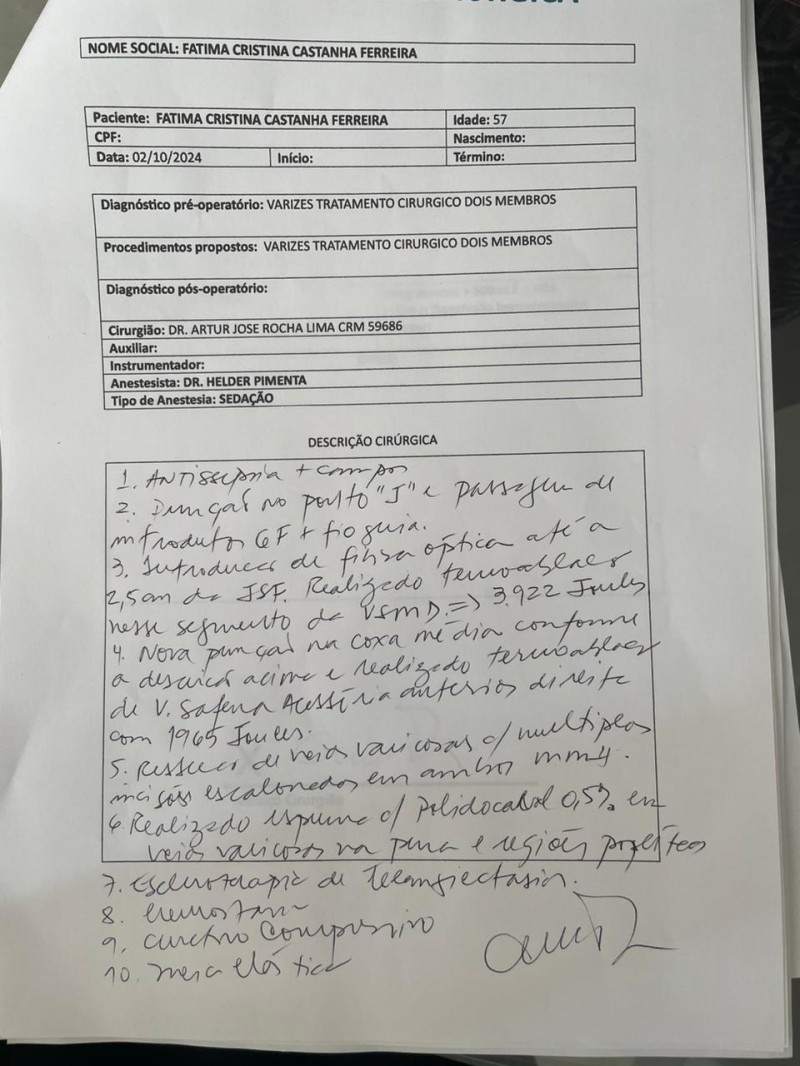 NOME SOCIAL: FATIMA CRISTINA CASTANHA FERREIRA
Paciente: FATIMA CRISTINA CASTANHA FERREIRA Idade: 57
CPF: Nascimento:
Data: 02/10/2024 Início: Término:
Diagnóstico pré-operatório: VARIZES TRATAMENTO CIRURGICO DOIS MEMBROS
Procedimentos propostos: VARIZES TRATAMENTO CIRURGICO DOIS MEMBROS
Diagnóstico pós-operatório:
Cirurgião: DR. ARTUR JOSE ROCHA LIMA CRM 59686
Auxiliar:
Instrumentador:
Anestesista: DR. HELDER PIMENTA
Tipo de Anestesia: SEDAÇÃO
DESCRIÇÃO CIRÚRGICA
1. Antissepsia + campos
2. Punção no ponto "J" e passagem de
introdutor 6F + fio guia.
3. Introducao de fibra optica até a
2,5cm da JSF. Realizado termoablacao
nesse segmento da VSMD. => 3.922 Joules
4. Nova punção na coxa média conforme
a descrição acima e realizado termoablacao
de V. Safena Acessória anterior direita
com 1965 Joules.
5. Resseccao de veias varicosas c/ multiplas
incisões escalonadas em ambos mmii.
6 Realizado espuma c/ Polidocanol 0,5% em
veias varicosas na perna e regiões poplíteas
7. Escleroterapia de telangiectasias.
8. Hemostasia
9. Curativo Compressivo
10. meia elástica